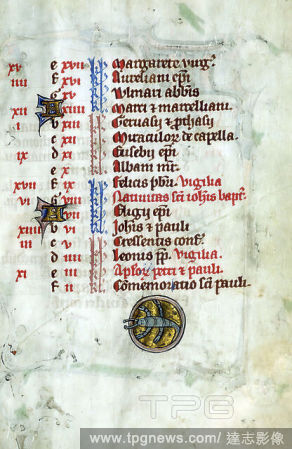 xv e xvii Margarete virg.
iiii f xvi Aureliani epi
g xv Vlmari abbis
xii A Marci & marcelliani.
i xiii Geruasy & pthasy
c xii Miraculor de capella.
ix d xi Eusebij epi
e x Albani mr.
xvii f ix Felicis pbri. vigilia
vi viii Natiuitas sci iohis bapt.
A vii Eligij epi
xiiii vi Johis & pauli
iii c v Crescentis conf.
d Leonis pp. vigilia.
xi e iii Aplor petri & pauli.
f ii Comemoratio sci pauli.
TPG
www.tpgnews.com/ 達志影像